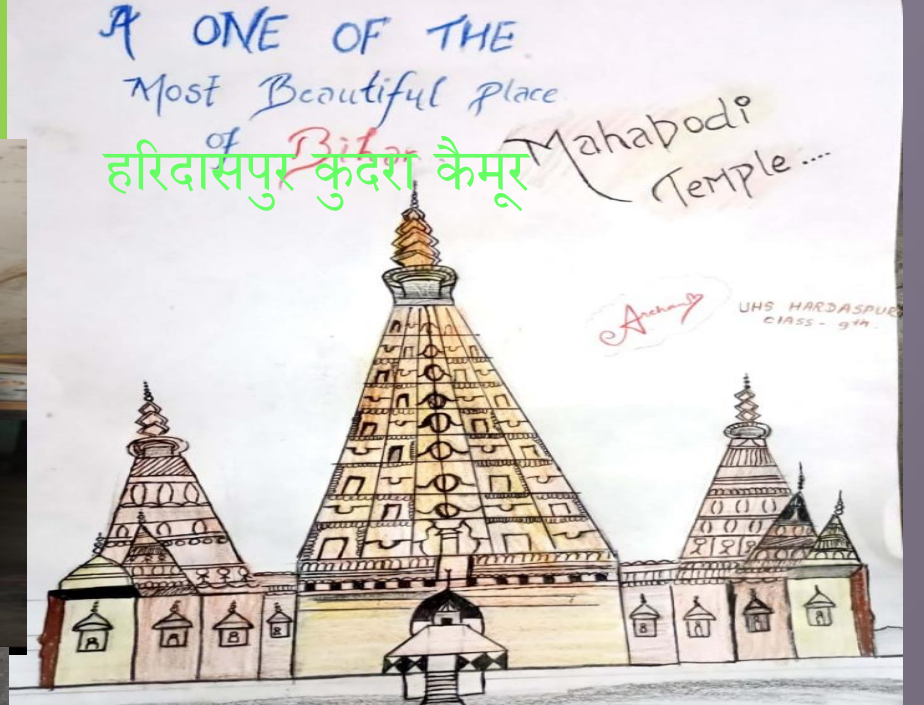 A ONE OF THE
Most Beautiful Place
of Bihar
हरिदासपुर कुदरा कैमूर
Mahabodi
Temple....
Archana
UHS HARDASPUR
CLASS - 9th.